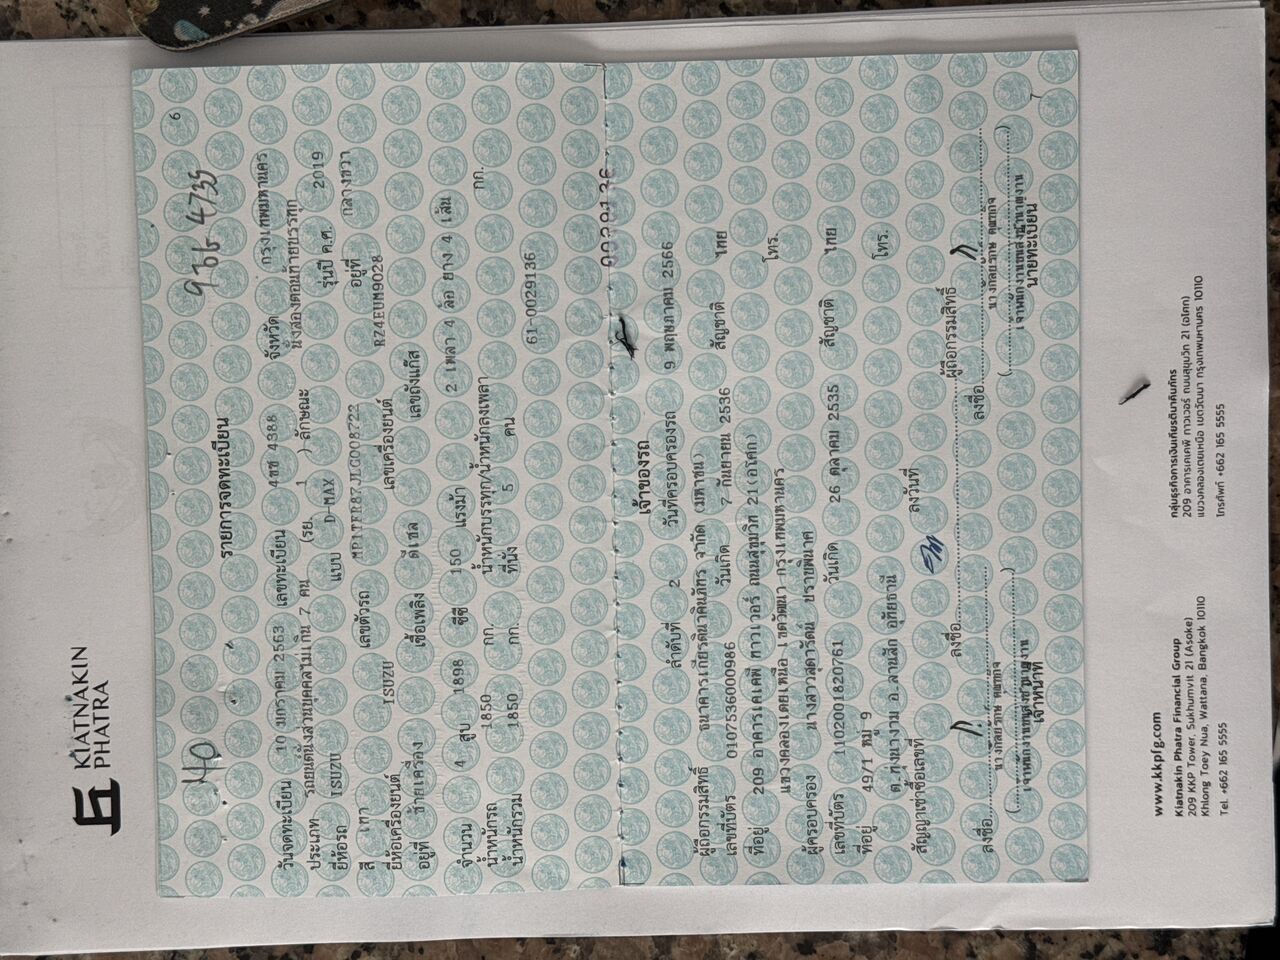 KIATNAKIN
PHATRA
6
40
936 4735
รายการจดทะเบียน
วันจดทะเบียน 10 มกราคม 2563 เลขทะเบียน 4ขช 4388 จังหวัด กรุงเทพมหานคร
ประเภท รถยนต์นั่งส่วนบุคคลไม่เกิน 7 คน (รย. 1 ) ลักษณะ นั่งสองตอนท้ายบรรทุก
ยี่ห้อรถ ISUZU แบบ D-MAX รุ่นปี ค.ศ. 2019
สี เทา เลขตัวรถ MP1TFR87JLG008722 อยู่ที่ กลางขวา
ยี่ห้อเครื่องยนต์ ISUZU เลขเครื่องยนต์ RZ4EUM9028
อยู่ที่ ซ้ายเครื่อง เชื้อเพลิง ดีเซล เลขถังแก๊ส
จำนวน 4 สูบ 1898 ซีซี 150 แรงม้า 2 เพลา 4 ล้อ ยาง 4 เส้น
น้ำหนักรถ 1850 กก. น้ำหนักบรรทุก/น้ำหนักลงเพลา กก.
น้ำหนักรวม 1850 กก. ที่นั่ง 5 คน
61-0029136
0029136
เจ้าของรถ
ลำดับที่ 2 วันที่ครอบครองรถ 9 พฤษภาคม 2566
ผู้ถือกรรมสิทธิ์ ธนาคารเกียรตินาคินภัทร จำกัด (มหาชน)
เลขที่บัตร 0107536000986 วันเกิด 7 กันยายน 2536 สัญชาติ ไทย
ที่อยู่ 209 อาคารเคเคพี ทาวเวอร์ ถนนสุขุมวิท 21(อโศก) โทร.
แขวงคลองเตยเหนือ เขตวัฒนา กรุงเทพมหานคร
ผู้ครอบครอง นางสาวสุดารัตน์ ปราชพนาค
เลขที่บัตร 1102001820761 วันเกิด 26 ตุลาคม 2535 สัญชาติ ไทย
ที่อยู่ 49/1 หมู่ 9 โทร.
ต.ทุ่งนางาม อ.ลานสัก อุทัยธานี
สัญญาเช่าซื้อเลขที่ ลงวันที่
ลงชื่อ ผู้ถือกรรมสิทธิ์
ลงชื่อ ลงชื่อ
เจ้าหน้าที่ นายทะเบียน
7
www.kkpfg.com
Kiatnakin Phatra Financial Group
209 KKP Tower, Sukhumvit 21 (Asoke)
Khlong Toey Nua, Wattana, Bangkok 10110
Tel. +662 165 5555
กลุ่มธุรกิจการเงินเกียรตินาคินภัทร
209 อาคารเคเคพี ทาวเวอร์ ถนนสุขุมวิท 21 (อโศก)
แขวงคลองเตยเหนือ เขตวัฒนา กรุงเทพมหานคร 10110
โทรศัพท์ +662 165 5555